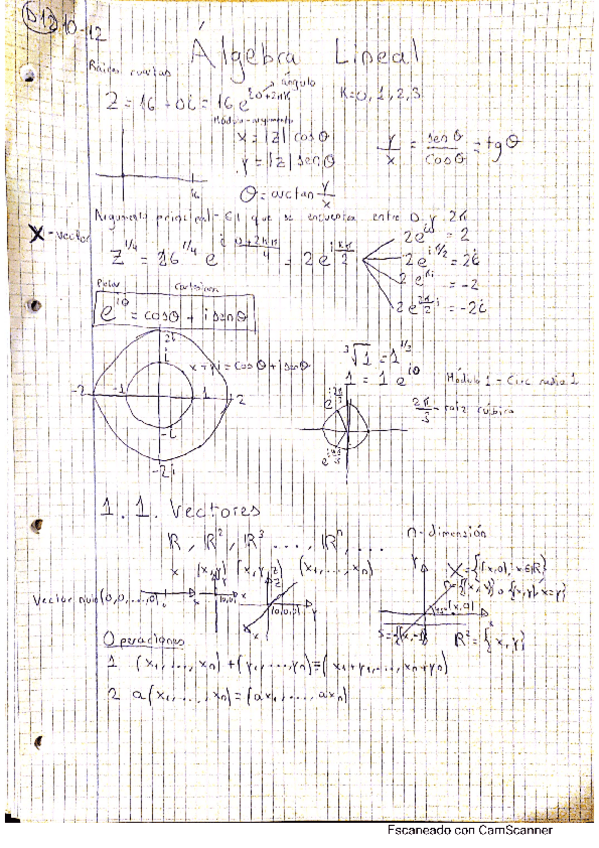 D12 10-12
Álgebra Lineal
Raíces cuartas
ángulo
Z = 16 + 0i = 16 e^i0+2πK K=0, 1, 2, 3
Módulo-argumento
x = |z| cosθ
y = |z| senθ
y/x = senθ/cosθ = tgθ
16
θ = arctan y/x
Argumento principal - El que se encuentra entre 0 y 2π
X - vector
Z^1/4 = 16^1/4 e^i (0+2Kπ)/4 = 2e^i Kπ/2
2e^i0 = 2
2e^i π/2 = 2i
2e^πi = -2
2e^3π/2 i = -2i
Polar Cartesiana
e^iθ = cosθ + i senθ
2i
i
x + yi = cosθ + i senθ
-2 -1 1 2
-i
-2i
³√1 = 1^1/3
1 = 1 e^i0
Módulo 1 = Circ radio 1
2π/3 - raíz cúbica
1. 1. Vectores
R, R², R³ ..., Rⁿ, ...
n - dimensión
x (x,y) (x,y,z) (x₁, ..., xₙ)
Vector nulo (0,0,...,0)
X = {(x,0), x∈R}
R² = {x,y}
Operaciones
1 (x₁, ..., xₙ) + (y₁, ..., yₙ) = (x₁+y₁, ..., xₙ+yₙ)
2 a(x₁, ..., xₙ) = (ax₁, ..., axₙ)
Escaneado con CamScanner